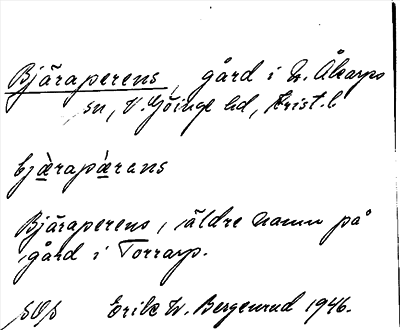 Bjäraperens, gård i N. Åkarps
sn, V. Göinge hd, Krist. l.
bjæ̀rapæ̀rans
Bjäraperens, äldre namn på
gård i Torrarp.
Erik W. Bergenrud 1946.